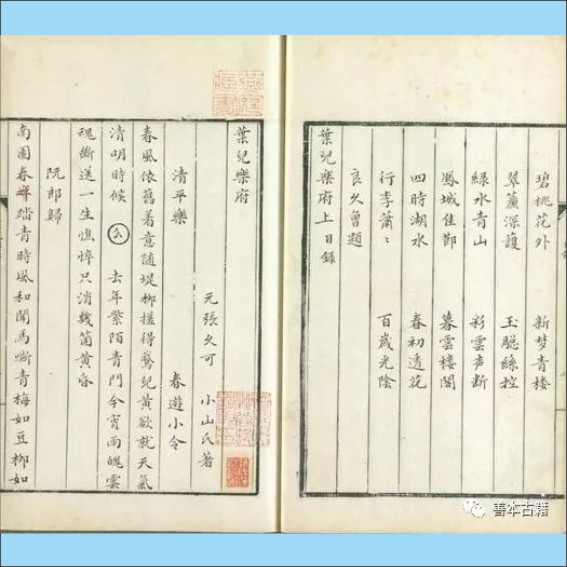 碧桃花外 新梦青楼
翠簾深護 玉驄絲控
綠水青山 彩雲声断
鳳城佳 暮雲樓閣
四時湖水 春初透花
行李蕭〻 百歲光陰
良久曾題
葉兒樂府上目錄
葉兒樂府
元張久可 小山氏著
清平樂 春遊小令
春風依舊着意随堤柳搓得鵞兒黄欲就天氣
清明時候 去年紫陌青門今宵雨魄雲
魂断送一生憔悴只消幾箇黄昏
阮郎歸
南園春半踏青時風和聞馬嘶青梅如豆柳如
善本古籍